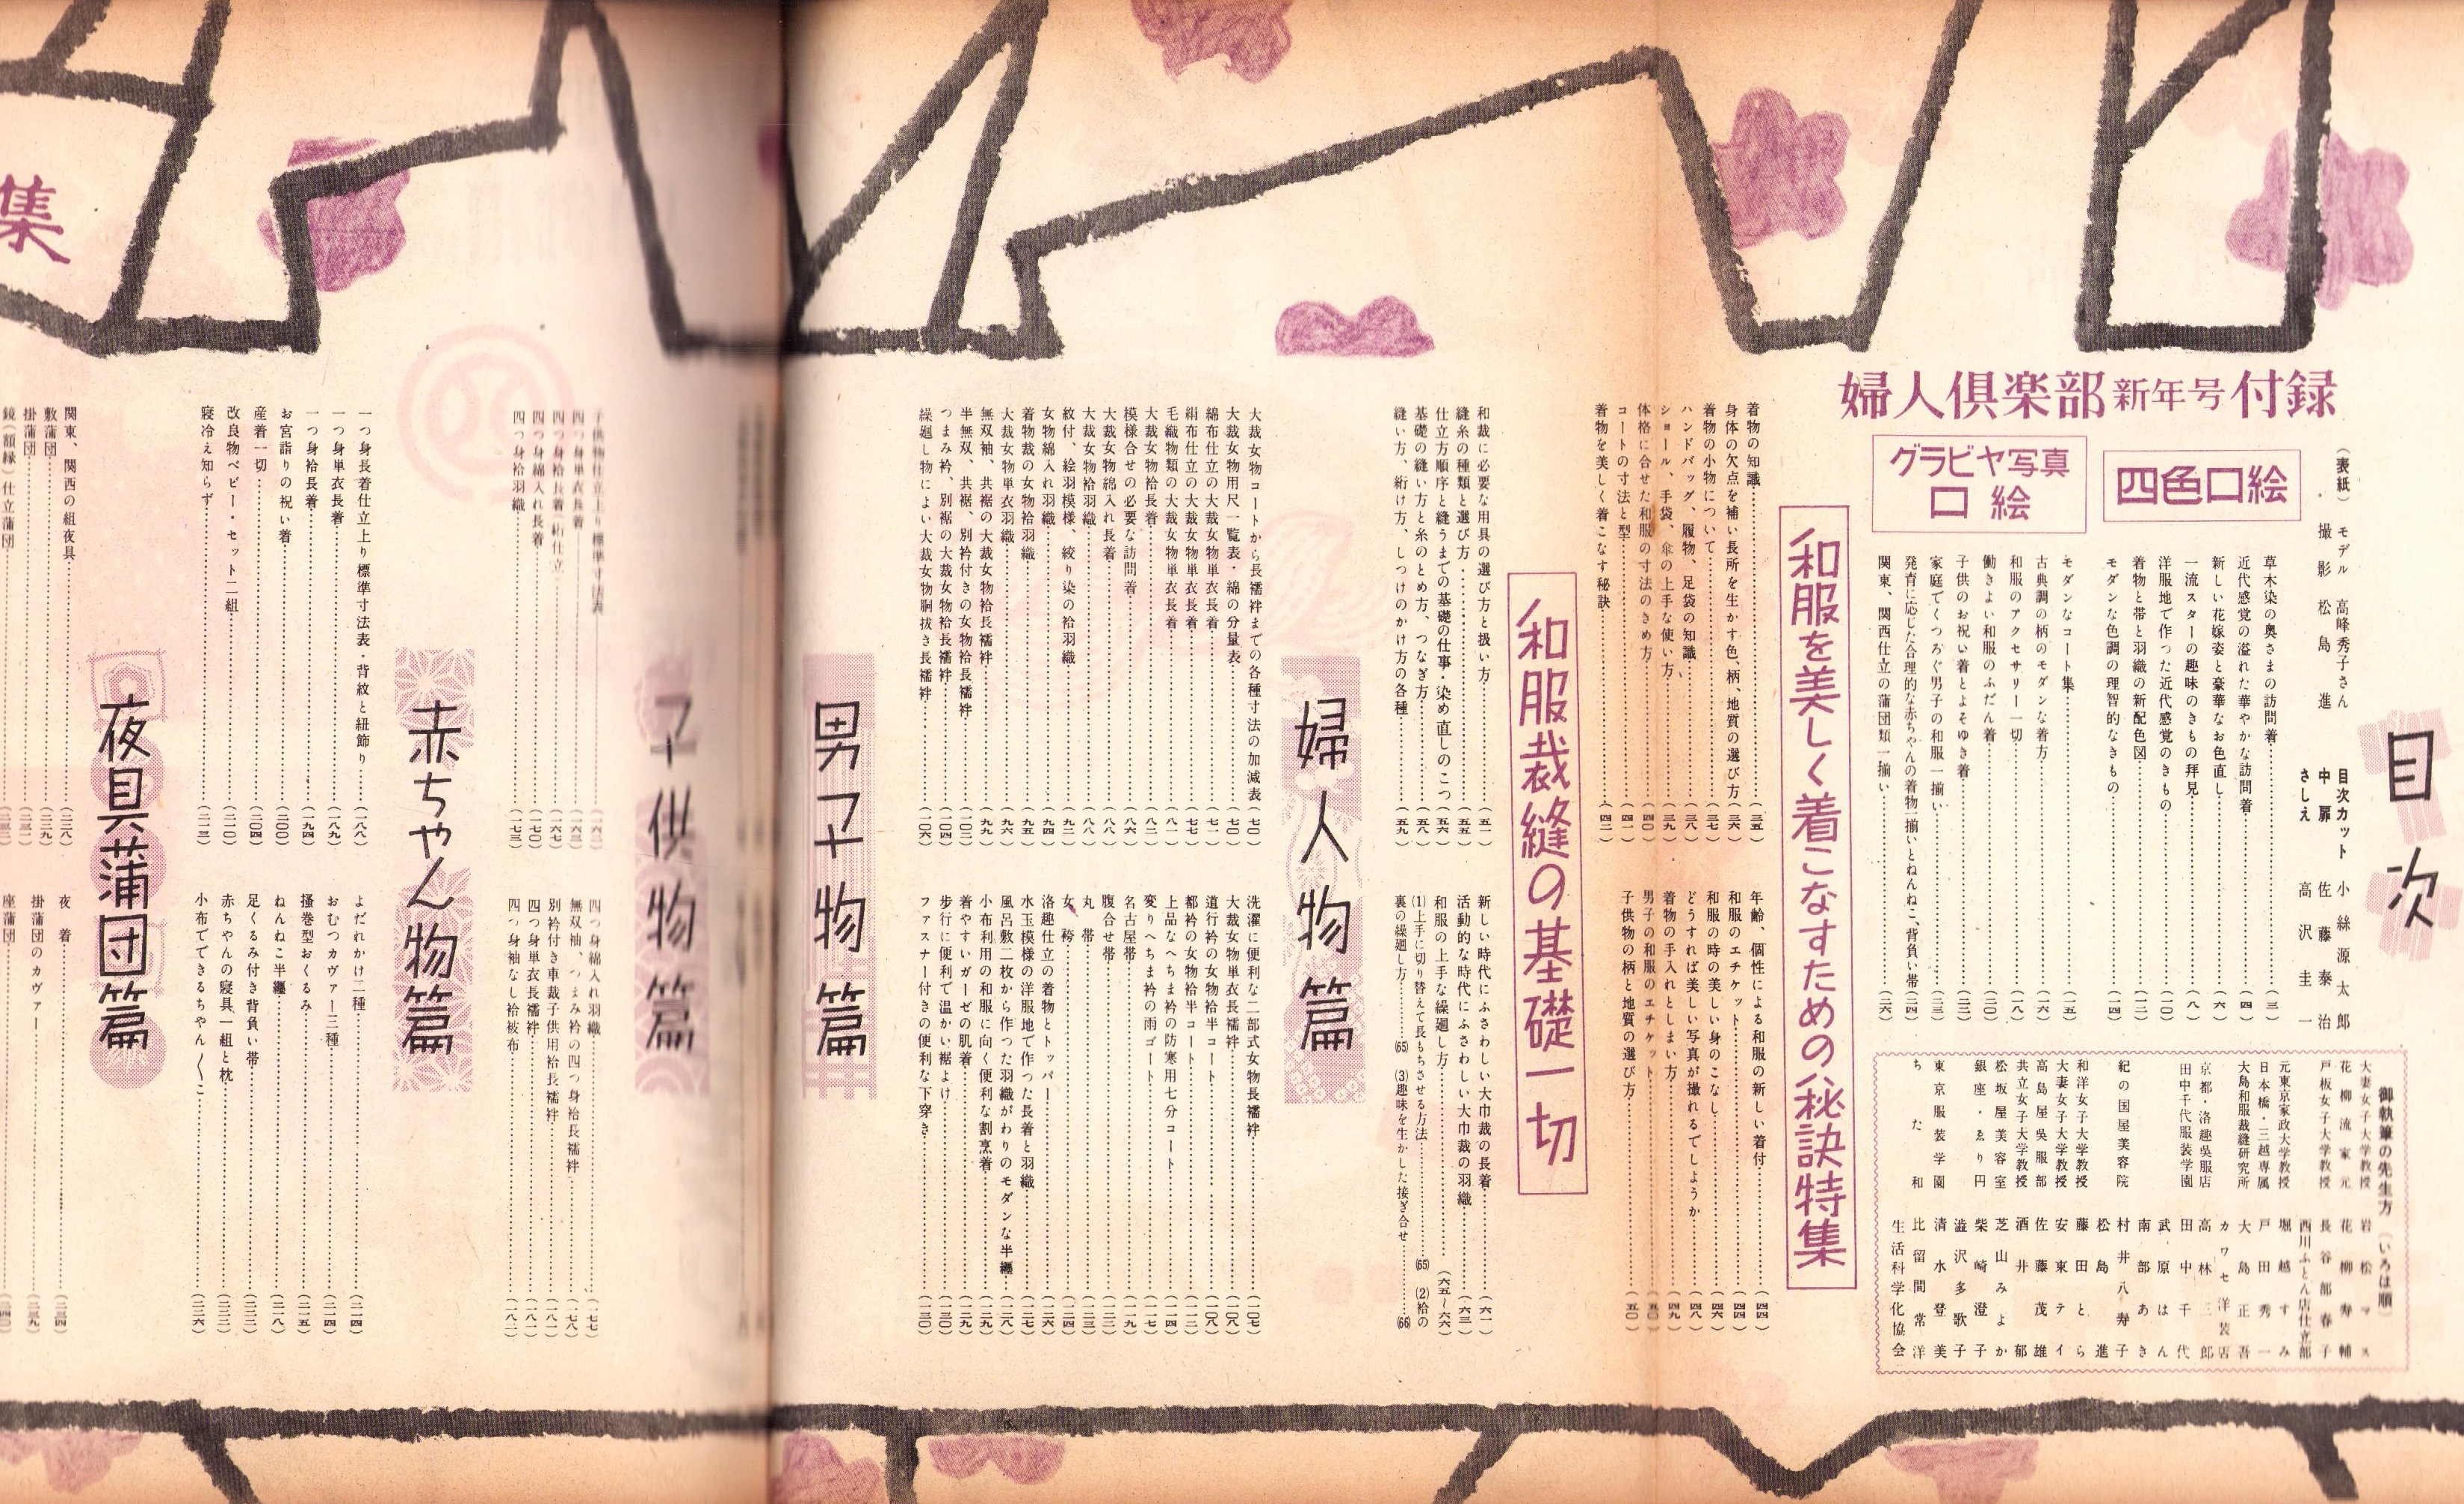 目次
婦人倶楽部新年号付録
(表紙) モデル 高峰秀子さん
撮影 松島進
目次カット 小絲源太郎
中扉 佐藤泰治
さしえ 高沢圭一
四色口絵
草木染の奥さまの訪問着(三)
近代感覚の溢れた華やかな訪問着(四)
新しい花嫁姿と豪華なお色直し(六)
一流スターの趣味のきもの拝見(八)
洋服地で作った近代感覚のきもの(一〇)
着物と帯と羽織の新配色図(一二)
モダンな色調の理智的なきもの(一四)
グラビヤ写真口絵
モダンなコート集(一五)
古典調の柄のモダンな着方(一六)
和服のアクセサリー一切(一八)
働きよい和服のふだん着(二〇)
子供のお祝い着とよそゆき着(二二)
家庭でくつろぐ男子の和服一揃い(二三)
発育に応じた合理的な赤ちゃんの着物一揃いとねんねこ、背負い帯(二四)
関東、関西仕立の蒲団類一揃い(二六)
御執筆の先生方(いろは順)
大妻女子大学教授 岩松マス
花柳流家元 花柳寿輔
戸板女子大学教授 長谷部春子
西川ふとん店仕立部
元東京家政大学教授 堀越すみ
日本橋・三越専属 戸田秀一
大島和服裁縫研究所 大島正吾
カワセ洋装店
京都・洛趣呉服店 高林三郎
田中千代服装学園 田中千代
武原はん
南部あき
紀の国屋美容院 村井八寿子
松島進
和洋女子大学教授 藤田とら
大妻女子大学教授 安東テイ
高島屋呉服部 佐藤茂雄
共立女子大学教授 酒井郁
松坂屋美容室 芝山みよか
銀座・ゑり円 柴崎澄子
澁沢多歌子
東京服装学園 清水登美
ちた和 比留間常洋
生活科学化協会
和服を美しく着こなすための秘訣特集
着物の知識(三五)
身体の欠点を補い長所を生かす色、柄、地質の選び方(三六)
着物の小物について(三七)
ハンドバッグ、履物、足袋の知識(三八)
ショール、手袋、傘の上手な使い方(三九)
体格に合せた和服の寸法のきめ方(四〇)
コートの寸法と型(四一)
着物を美しく着こなす秘訣(四二)
年齢、個性による和服の新しい着付(四四)
和服のエチケット(四四)
和服の時の美しい身のこなし(四六)
どうすれば美しい写真が撮れるでしょうか(四八)
着物の手入れとしまい方(四九)
男子の和服のエチケット(五〇)
子供物の柄と地質の選び方(五〇)
和服裁縫の基礎一切
和裁に必要な用具の選び方と扱い方(五一)
縫糸の種類と選び方(五五)
仕立方順序と縫うまでの基礎の仕事・染め直しのこつ(五六)
基礎の縫い方と糸のとめ方、つなぎ方(五八)
縫い方、絎け方、しつけのかけ方の各種(五九)
新しい時代にふさわしい大巾裁の長着(六一)
活動的な時代にふさわしい大巾裁の羽織(六三)
和服の上手な繰廻し方(六五~六六)
(1)上手に切り替えて長もちさせる方法(65) (2)袷の
裏の繰廻し方(65) (3)趣味を生かした接ぎ合せ(66)
婦人物篇
大裁女物コートから長襦袢までの各種寸法の加減表(七〇)
大裁女物用尺一覧表・綿の分量表(七〇)
綿布仕立の大裁女物単衣長着(七一)
絹布仕立の大裁女物単衣長着(七七)
毛織物類の大裁女物単衣長着(八一)
大裁女物袷長着(八二)
模様合せの必要な訪問着(八六)
大裁女物綿入れ長着(八八)
大裁女物袷羽織(八八)
紋付、絵羽模様、絞り染の袷羽織(九二)
女物綿入れ羽織(九四)
着物裁の女物袷羽織(九五)
大裁女物単衣羽織(九六)
無双袖、共裾の大裁女物袷長襦袢(九九)
半無双、共裾、別衿付きの女物袷長襦袢(一〇二)
つまみ衿、別裾の大裁女物袷長襦袢(一〇四)
繰廻し物によい大裁女物胴抜き長襦袢(一〇六)
洗濯に便利な二部式女物長襦袢(一〇七)
大裁女物単衣長襦袢(一〇八)
道行衿の女物袷半コート(一〇八)
都衿の女物袷半コート(一一二)
上品なへちま衿の防寒用七分コート(一一四)
変りへちま衿の雨ゴート(一一七)
名古屋帯(一一九)
腹合せ帯(一二二)
丸帯(一二三)
女袴(一二四)
洛趣仕立の着物とトッパー(一二六)
水玉模様の洋服地で作った長着と羽織(一二七)
風呂敷二枚から作った羽織がわりのモダンな半纏(一二八)
小布利用の和服に向く便利な割烹着(一二九)
着やすいガーゼの肌着(一二九)
歩行に便利で温かい裾よけ(一三〇)
ファスナー付きの便利な下穿き(一三〇)
男子物篇
子供物篇
四つ身単衣長着
四つ身袷長着・絎仕立(一六七)
四つ身綿入れ長着(一七〇)
四つ身袷羽織(一七三)
四つ身綿入れ羽織(一七七)
無双袖、つまみ衿の四つ身袷長襦袢(一七八)
別衿付き車裁子供用袷長襦袢(一八一)
四つ身単衣長襦袢(一八一)
四つ身袖なし袷被布(一八二)
赤ちゃん物篇
一つ身長着仕立上り標準寸法表・背紋と紐飾り(一八八)
一つ身単衣長着(一八九)
一つ身袷長着(一九四)
お宮詣りの祝い着(二〇〇)
産着一切(二〇四)
改良物ベビー・セット二組(二一〇)
寝冷え知らず(二一三)
よだれかけ二種(二一四)
おむつカヴァー三種(二一四)
掻巻型おくるみ(二一五)
ねんねこ半纏(二一八)
足くるみ付き背負い帯(二二二)
赤ちゃんの寝具一組と枕(二二三)
小布でできるちゃん〱こ(二二六)
夜具蒲団篇
関東、関西の組夜具(二二八)
敷蒲団(二二九)
掛蒲団(二三一)
鏡(額縁)仕立蒲団
夜着(二三四)
掛蒲団のカヴァー(二三九)
座蒲団
集